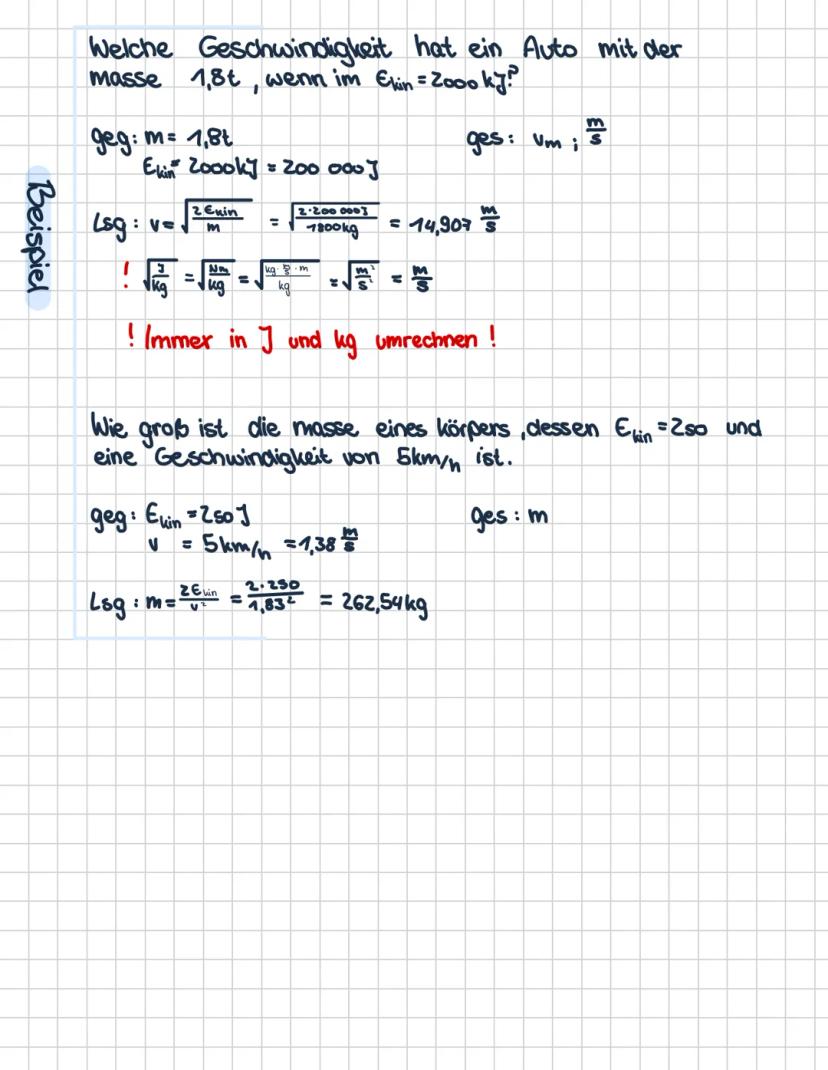 Welche Geschwindigkeit hat ein Auto mit der
masse 1,8t , wenn im Ekin = 2000 kJ?
geg: m = 1,8t ges: vm ; m/s
Ekin = 2000kJ = 200 000J
Lsg: v = √(2Ekin/m) = √(2·200 000J/1800kg) = 14,907 m/s
! √(J/kg) = √(Nm/kg) = √(kg · m/s² · m/kg) = √(m²/s²) = m/s
! Immer in J und kg umrechnen !
Beispiel
Wie groß ist die masse eines körpers , dessen Ekin = 250 und
eine Geschwindigkeit von 5km/h ist.
geg: Ekin = 250J ges: m
v = 5km/h = 1,38 m/s
Lsg: m = 2Ekin/v² = 2·250/1,83² = 262,54kg